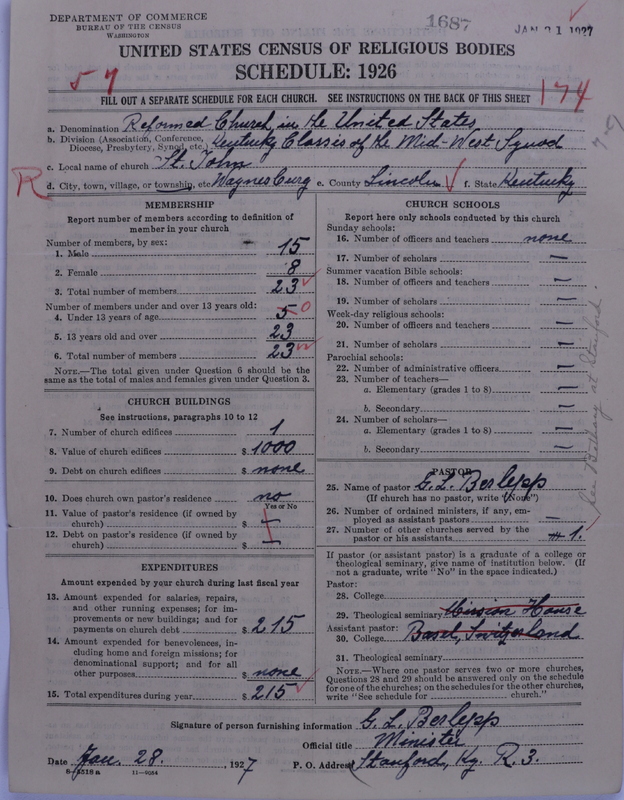 DEPARTMENT OF COMMERCE
BUREAU OF THE CENSUS
WASHINGTON
1687
JAN 21 1927
UNITED STATES CENSUS OF RELIGIOUS BODIES
SCHEDULE: 1926
57
174
FILL OUT A SEPARATE SCHEDULE FOR EACH CHURCH. SEE INSTRUCTIONS ON THE BACK OF THIS SHEET
a. Denomination Reformed Church in the United States
b. Division (Association, Conference, Diocese, Presbytery, Synod, etc.) Kentucky Classis of the Mid-West Synod
c. Local name of church St. John
R
d. City, town, village, or township, etc Waynesburg e. County Lincoln f. State Kentucky
MEMBERSHIP
Report number of members according to definition of
member in your church
Number of members, by sex:
1. Male 15
2. Female 8
3. Total number of members 23
Number of members under and over 13 years old:
4. Under 13 years of age 5 0
5. 13 years old and over 23
6. Total number of members 23
NOTE.—The total given under Question 6 should be the
same as the total of males and females given under Question 3.
CHURCH BUILDINGS
See instructions, paragraphs 10 to 12
7. Number of church edifices 1
8. Value of church edifices $ 1000
9. Debt on church edifices $ none
10. Does church own pastor's residence no
Yes or No
11. Value of pastor's residence (if owned by
church) $ —
12. Debt on pastor's residence (if owned by
church) $ —
EXPENDITURES
Amount expended by your church during last fiscal year
13. Amount expended for salaries, repairs,
and other running expenses; for im-
provements or new buildings; and for
payments on church debt $ 215
14. Amount expended for benevolences, in-
cluding home and foreign missions; for
denominational support; and for all
other purposes $ none
15. Total expenditures during year $ 215
CHURCH SCHOOLS
Report here only schools conducted by this church
Sunday schools:
16. Number of officers and teachers none
17. Number of scholars —
Summer vacation Bible schools:
18. Number of officers and teachers —
19. Number of scholars —
Week-day religious schools:
20. Number of officers and teachers —
21. Number of scholars —
Parochial schools:
22. Number of administrative officers —
23. Number of teachers—
a. Elementary (grades 1 to 8) —
b. Secondary —
24. Number of scholars—
a. Elementary (grades 1 to 8) —
b. Secondary —
PASTOR
25. Name of pastor G. L. Berlepp
(If church has no pastor, write "None")
26. Number of ordained ministers, if any, em-
ployed as assistant pastors —
27. Number of other churches served by the
pastor or his assistants 1.
If pastor (or assistant pastor) is a graduate of a college or
theological seminary, give name of institution below. (If
not a graduate, write "No" in the space indicated.)
Pastor:
28. College
29. Theological seminary Mission House
Assistant pastor:
30. College Basel, Switzerland
31. Theological seminary
NOTE.—Where one pastor serves two or more churches,
Questions 28 and 29 should be answered only on the schedule
for one of the churches; on the schedules for the other churches,
write "See schedule for church."
at Stanford.
Signature of person furnishing information G. L. Berlepp
Official title Minister
Date Jan. 28. , 1927 P. O. Address Stanford, Ky. R. 3.
8-1518 a 11-9084